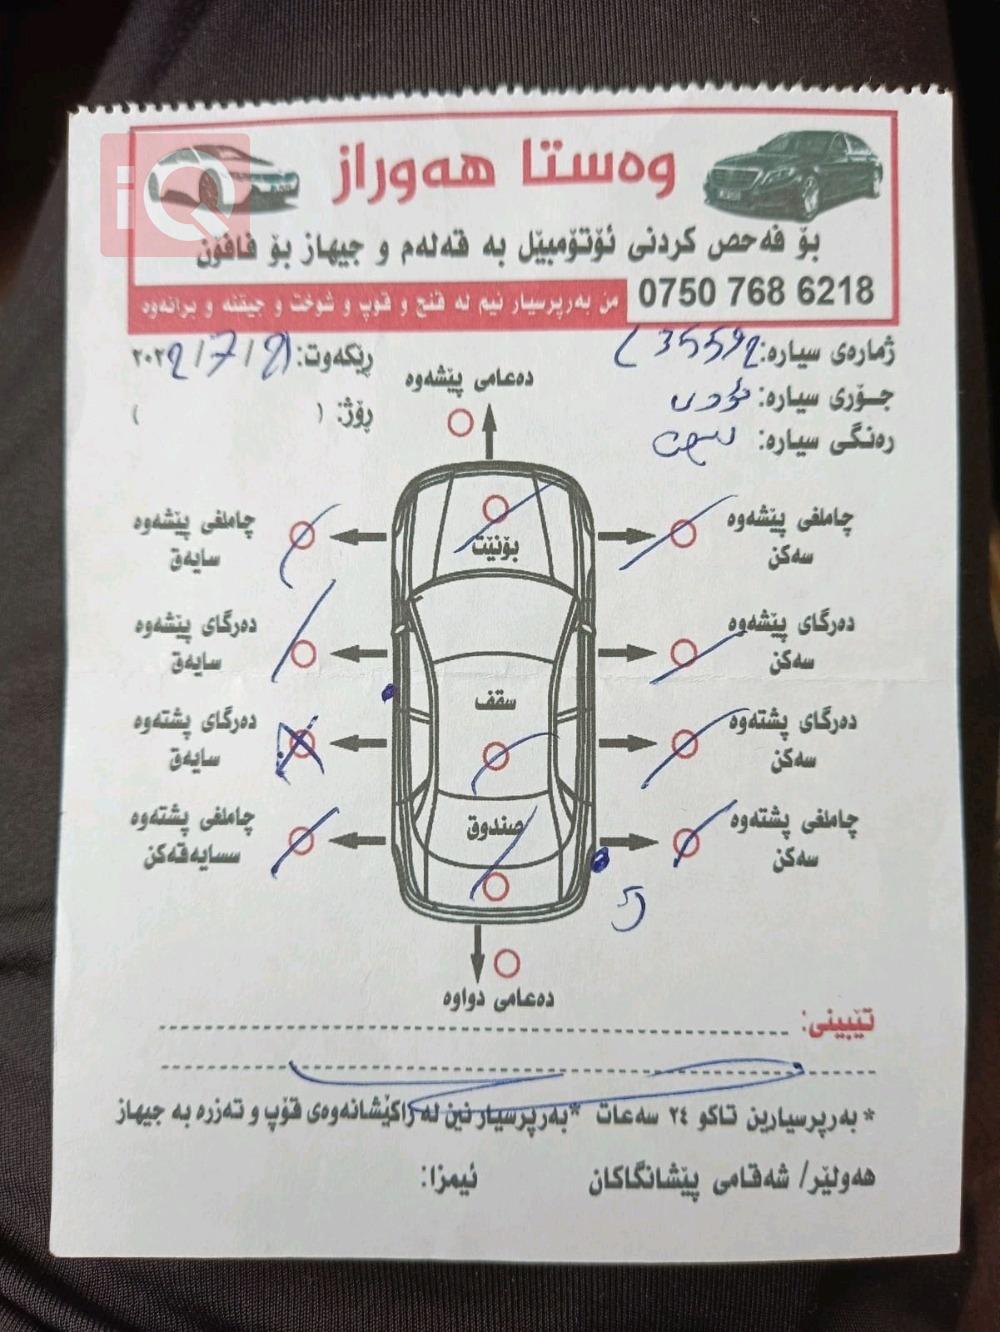 iQ
وەستا هەوراز
بۆ فەحص کردنی ئۆتۆمبێل بە قەلەم و جیهاز بۆ قافۆن
0750 768 6218
من بەرپرسیار نیم لە قنج و قوپ و شوخت و جیقنە و برانەوە
ژمارەی سیارە: 35592
ڕێکەوت: 21/7/2022
جۆری سیارە:
ڕۆژ: ( )
ڕەنگی سیارە:
دەعامی پێشەوە
چاملغی پێشەوە سەکن
بۆنێت
چاملغی پێشەوە سایەق
دەرگای پێشەوە سەکن
دەرگای پێشەوە سایەق
سقف
دەرگای پشتەوە سەکن
دەرگای پشتەوە سایەق
صندوق
چاملغی پشتەوە سەکن
چاملغی پشتەوە سسایەقەکن
دەعامی دواوە
تێبینی:
* بەرپرسیارین تاکو ٢٤ سەعات *بەرپرسیار نین لە ڕاکێشانەوەی قۆپ و تەزرە بە جیهاز
هەولێر/ شەقامی پێشانگاکان ئیمزا: